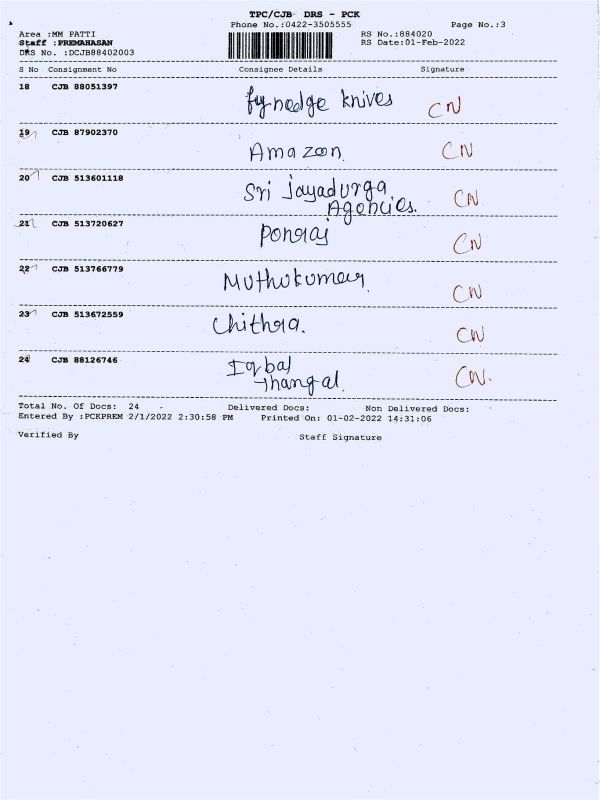 TPC/CJB DRS - PCK
Phone No.:0422-3505555 Page No.:3
Area :MM PATTI RS No.:884020
Staff :PREMAHASAN RS Date:01-Feb-2022
DRS No. :DCJB88402003
S No Consignment No Consignee Details Signature
18 CJB 88051397 knives CN
19 CJB 87902370 Amazon. CN
20 CJB 513601118 Sri Jayadurga CN
Agencies.
21 CJB 513720627 Ponraj CN
22 CJB 513766779 Muthukumar CN
23 CJB 513672559 Chithra. CN
24 CJB 88126746 Iqbal CN.
Thangal
Total No. Of Docs: 24 Delivered Docs: Non Delivered Docs:
Entered By :PCKPREM 2/1/2022 2:30:58 PM Printed On: 01-02-2022 14:31:06
Verified By Staff Signature